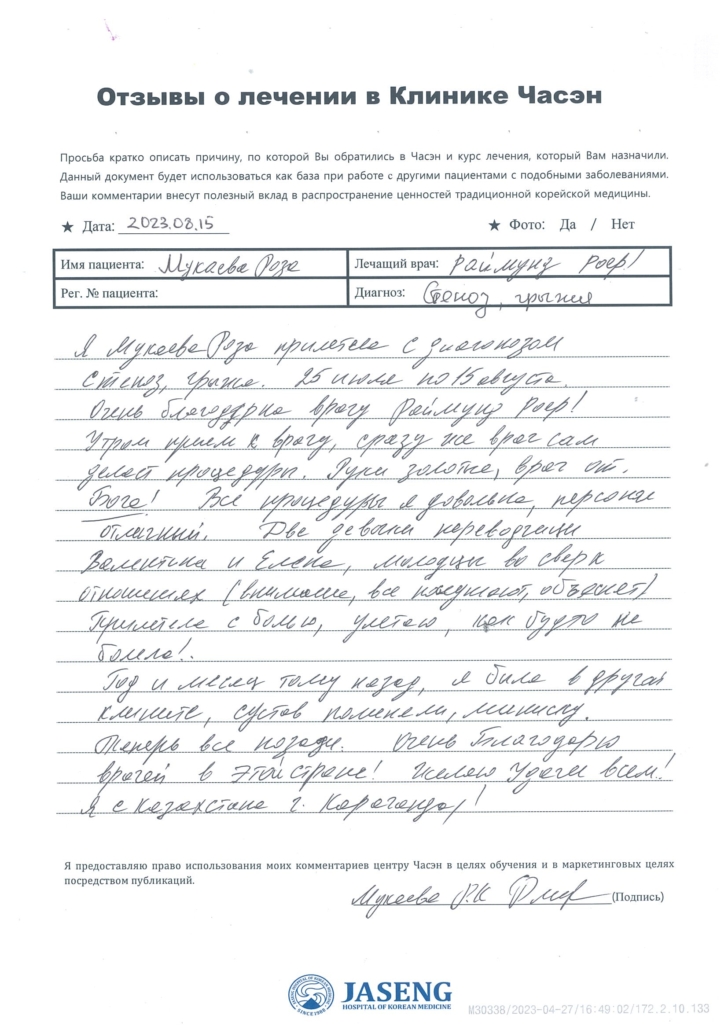 Отзывы о лечении в Клинике Часэн
Просьба кратко описать причину, по которой Вы обратились в Часэн и курс лечения, который Вам назначили.
Данный документ будет использоваться как база при работе с другими пациентами с подобными заболеваниями.
Ваши комментарии внесут полезный вклад в распространение ценностей традиционной корейской медицины.
★ Дата: 2023.08.15 ★ Фото: Да / Нет
Имя пациента: Мукаева Роза Лечащий врач: Раймунд Роер!
Рег. № пациента: Диагноз: Стеноз, грыжа
Я Мукаева Роза прилетела с диагнозом
Стеноз, грыжа. 25 июля по 15 августа.
Очень благодарна врачу Раймунд Роер!
Утром прием к врачу, сразу же врач сам
делает процедуры. Руки золотые, врач от.
Бога! Все процедуры я довольна, персонал
отличный. Две девочки переводчицы
Валентина и Елена, молодцы во сверх
отношениях (внимание, все покушают, объяснет)
Прилетела с болью, улетаю, как будто не
болела!.
Год и месяц тому назад, я была в другой
клинике, сустав поменяли, мениску.
Теперь все позади. Очень Благодарю
врачей в этой стране! Желаю Удачи всем!
Я с Казахстана г. Караганды!
Я предоставляю право использования моих комментариев центру Часэн в целях обучения и в маркетинговых целях
посредством публикаций.
Мукаева Р.К (Подпись)
JASENG
HOSPITAL OF KOREAN MEDICINE
M30338/2023-04-27/16:49:02/172.2.10.133